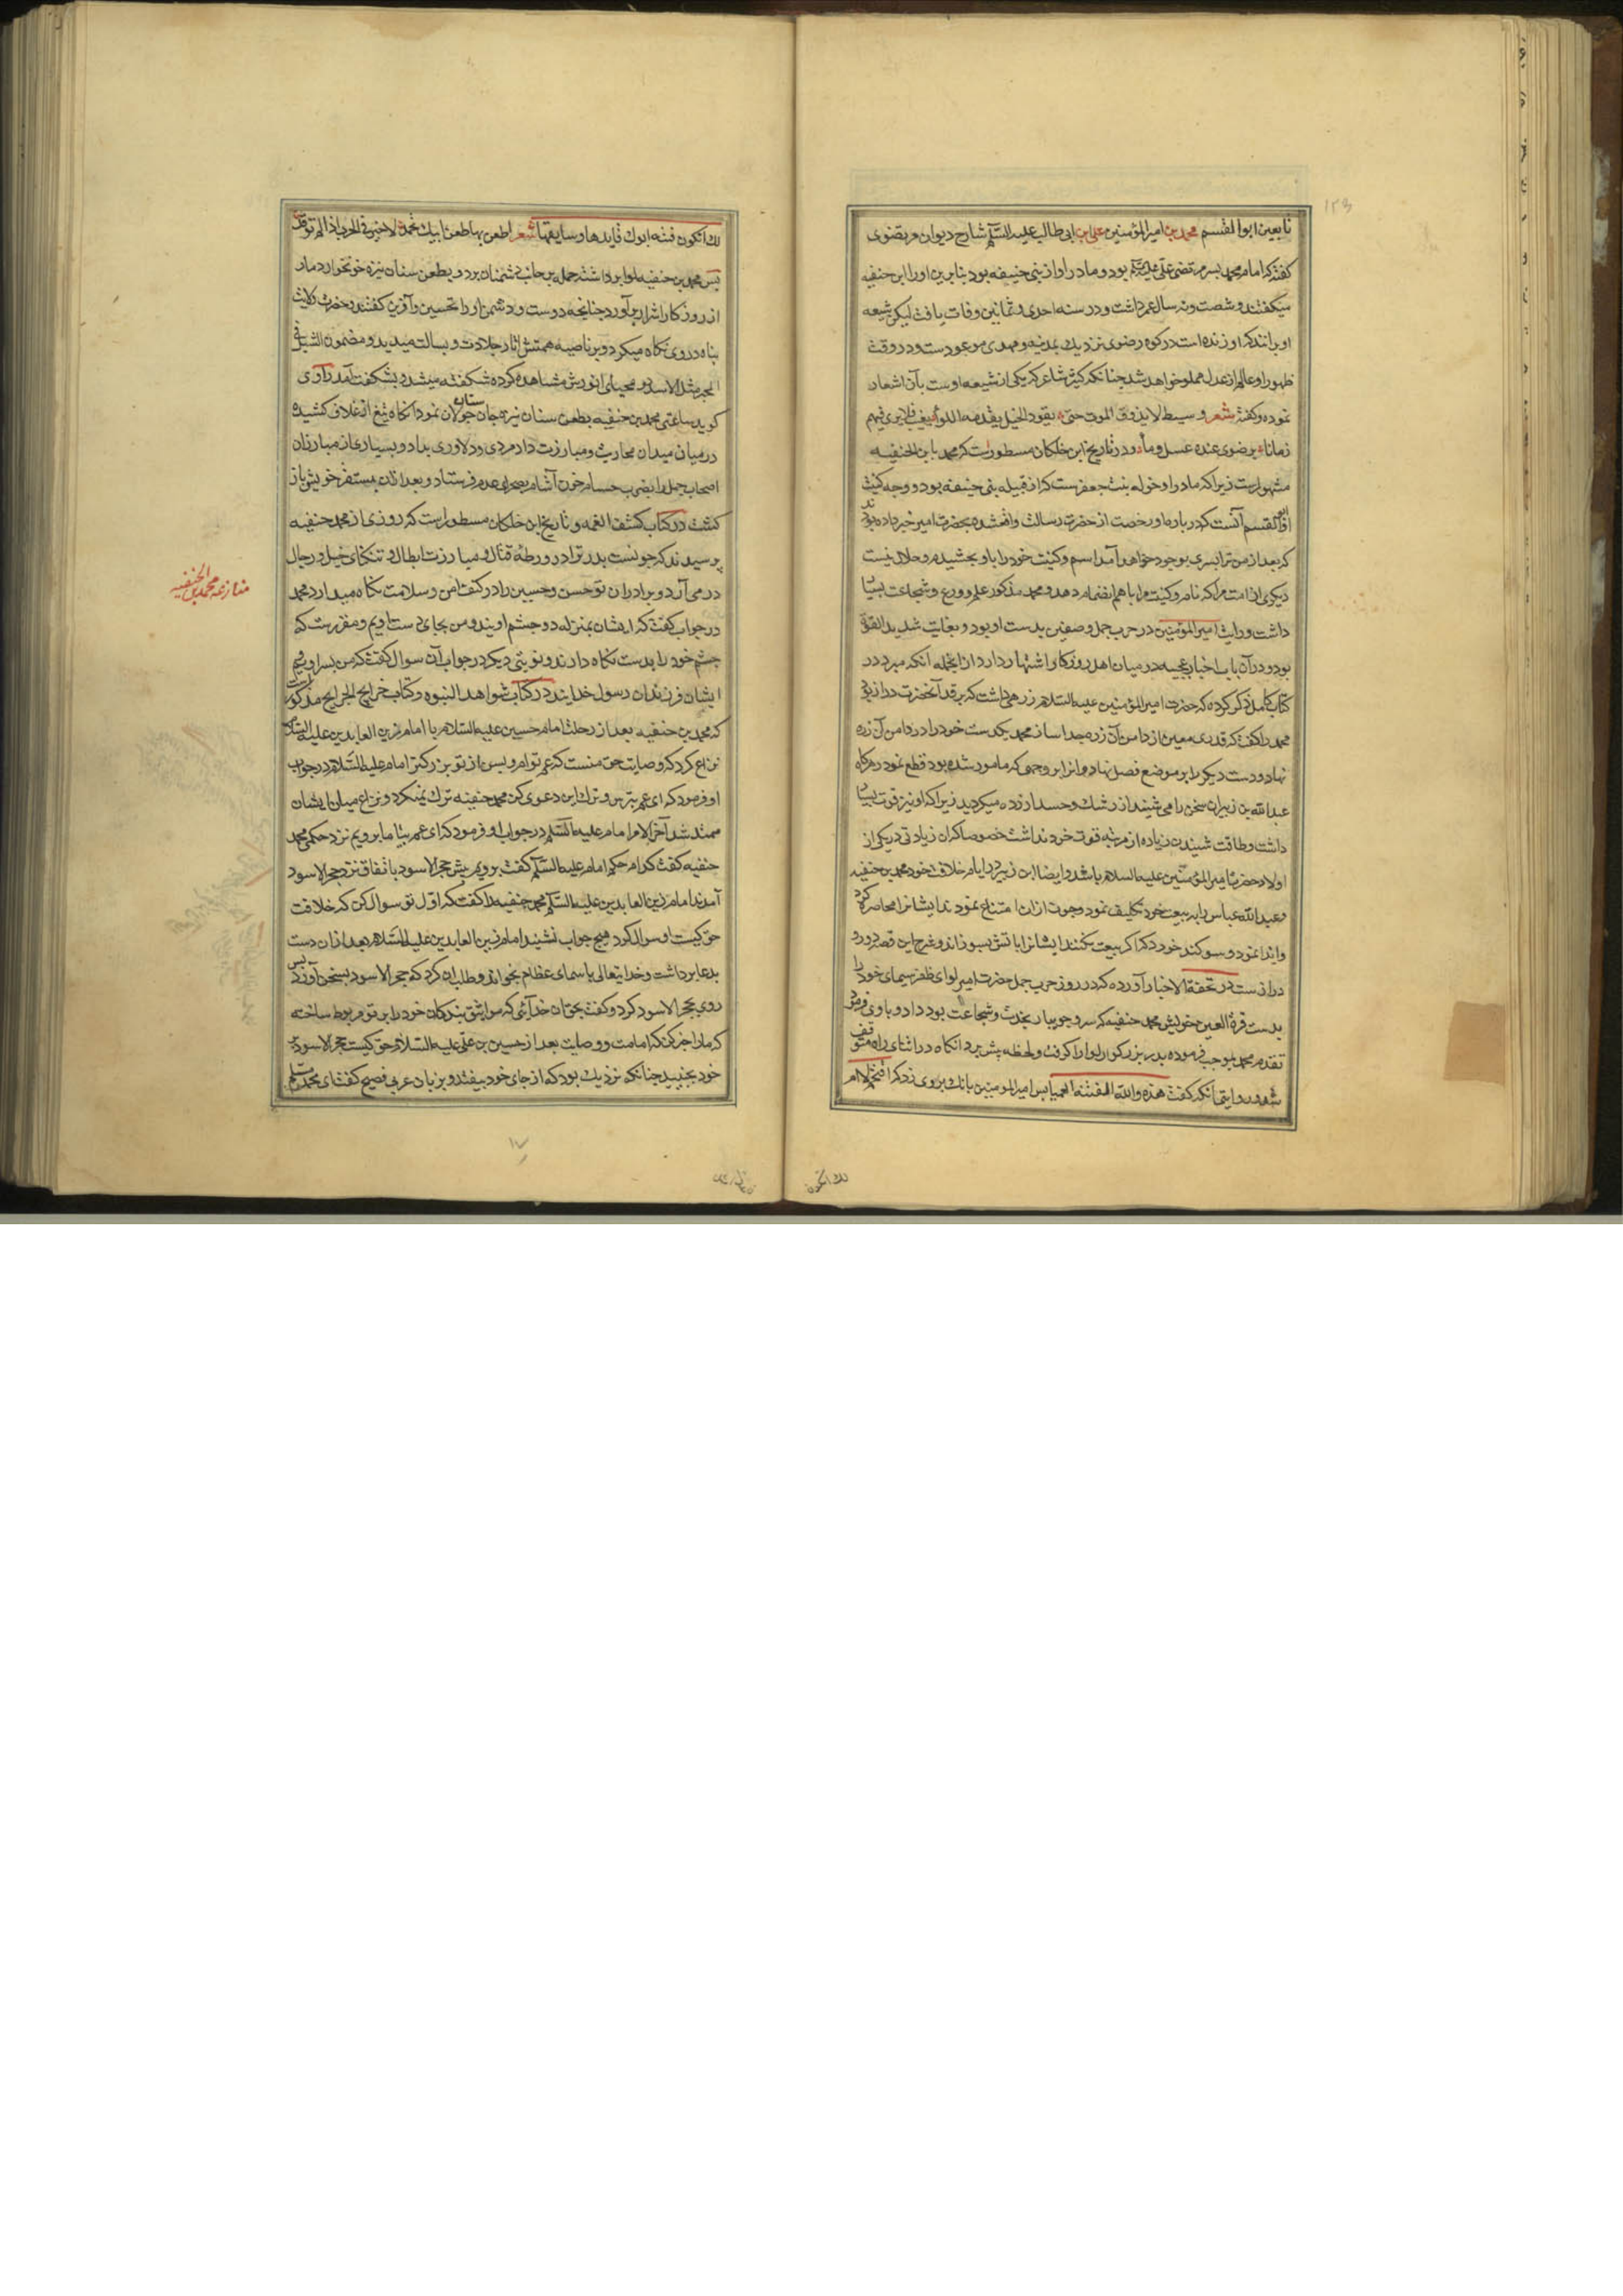 تابعین ابو القسم محمد بن امیر المؤمنین علی بن ابی طالب علیه السلام شارح دیوان مرتضوی
کفته که امام محمد پسر مرتضی علی علیه السلم بود و مادر او از بنی حنیفه بود بنابرین او را ابن حنیفه
میکفتند و شصت و نه سال عمر داشت و در سنه احدی و ثمانین وفات یافت لیکن شیعه
او برانند که او زنده است در کوه رضوی نزدیک بمدینه و مهدی موعودست و در وقت
ظهور او عالم از عدل مملو خواهد شد چنانکه کثیر شاعر که یکی از شیعه اوست بآن اشعار
نموده و کفته شعر و سبط لا یذوق الموت حتی یقود الخیل یقدمه اللوا یغیب فلا یری فیهم
زمانا برضوی عنده عسل و ماء و در تاریخ ابن خلکان مسطورست که محمد بابن الحنفیه
مشهورست زیرا که مادر او خوله بنت جعفرست که از قبیله بنی حنیفه بود و وجه کنیت
او ابو القسم آنست که در باره او رخصت از حضرت رسالت واقعشده بحضرت امیر خبر داده بودند
که بعد از من ترا پسری بوجود خواهد آمد اسم و کنیت خود را باو بخشیدم و حلال نیست
دیکری از امت مرا که نام و کنیت مرا با هم انضمام دهد و محمد مذکور علم و ورع و شجاعت بسیار
داشت و رایت امیر المؤمنین در حرب جمل و صفین بدست او بود و بغایت شدید القوة
بود و در آن باب اخبار عجیبه در میان اهل روزکار اشتهار دارد از انجمله آنکه مبرد در
کتاب کامل ذکر کرده که حضرت امیر المؤمنین علیه السلام زرهی داشت که بر قد آنحضرت دراز بود
محمد را کفت که قدری معین از دامن آن زره جدا ساز محمد یکدست خود را در دامن آن زره
نهاد و دست دیکر را بر موضع فصل نهاد و انرا بر وجهی که مامور شده بود قطع نمود هر کاه
عبد الله بن زبیر این سخن را می شنید از رشک و حسد ازرده میکردید زیرا که او نیز قوت بسیار
داشت و طاقت شنیدن زیاده از مرتبه قوت خود نداشت خصوصا که ان زیادتی در یکی از
اولاد حضرت امیر المؤمنین علیه السلام باشد و ایضا ابن زبیر در ایام خلافت خود محمد بن حنفیه
و عبد الله عباس را به بیعت خود تکلیف نمود و چون از ان امتناع نمودند ایشانرا محاصره کرد
و ایذا نمود و سوکند خورد که اکر بیعت نکنند ایشانرا باتش بسوزاند و شرح این قصه دور و
درازست در تحفة الاخبار آورده که در روز حرب جمل حضرت امیر لوای ظفر سیمای خود را
بدست قرة العین خویش محمد حنفیه که سرو جویبار نجدت و شجاعت بود داد و باوی فرمود
تقدم محمد بموجب فرموده پدر بزرکوار لوا را کرفت و لحظه پیش برد انکاه در اثنای راه متوقف
شد و روایتی آنکه کفت هذه والله الفتنه العمیا پس امیر المومنین بانک بر وی زد که اقتحم لا ام
لک اتکون فتنه
۱۲۹
لک اتکون فتنه ابوک قایدها و سایقها شعر اطعن بها طعن ابیک تحمد لا خیر فی الحرب اذا لم توقد
پس محمد بن حنفیه لوا برداشته حمله بر جانب دشمنان برد و بطعن سنان نیزه خونخوار دمار
از روزکار اشرار برآورد چنانچه دوست و دشمن او را تحسین و آفرین کفتند و حضرت ولایت
پناه در وی نکاه میکرد و بر ناصیه همتش اثار جلادت و بسالت میدید و مضمون الشبل فی
المخبر مثل الاسد در محیای انورش مشاهده کرده شکفته میشد و بشکفت آمد راوی
کوید ساعتی محمد بن حنفیه بطعن سنان نیزه جان ستان جولان نمود انکاه تیغ از غلاف کشیده
در میان میدان محاربت و مبارزت داد مردی و دلاوری بداد و بسیاری از مبارزان
اصحاب جمل را بضرب حسام خون آشام بصحرای عدم فرستاد و بعد از ان بمستقر خویش باز
کشت در کتاب کشف الغمه و تاریخ ابن خلکان مسطورست که روزی از محمد حنفیه
پرسیدند که چونست پدر ترا در ورطه قتال و مبارزت ابطال و تنکنای خیل و رجال
در می آرد و برادران تو حسن و حسین را در کنف امن و سلامت نکاه میدارد محمد
در جواب کفت که ایشان بمنزله دو چشم اویند و من بجای دست اویم و مقررست که
چشم خود را بدست نکاه دارند و نوبتی دیکر در جواب آن سوال کفت که من پسر اویم
ایشان فرزندان رسول خدایند در کتاب شواهد النبوه و کتاب خرایج الجرایح مذکورست
که محمد بن حنفیه بعد از رحلت امام حسین علیه السلام با امام زین العابدین علیه السلام
نزاع کرد که وصایت حق منست که عم توام و پس از تو بزرکتر امام علیه السلام در جواب
او فرمود که ای عم بترس و ترک این دعوی کن محمد حنفیه ترک نمیکرد و نزاع میان ایشان
ممتد شد آخر الامر امام علیه السلم در جواب او فرمود که ای عم بیا ما برویم نزد حکمی محمد
حنفیه کفت کدام حکم امام علیه السلم کفت برویم پیش حجر الاسود باتفاق نزد حجر الاسود
آمدند امام زین العابدین علیه السلم محمد حنفیه را کفت که اول تو سوال کن که خلافت
حق کیست او سوال کرد هیچ جواب نشنید امام زین العابدین علیه السلام بعد از ان دست
بدعا برداشت و خدایتعالی باسمای عظام بخواند و طلب ان کرد که حجر الاسود بسخن آورد پس
روی بحجر الاسود کرد و کفت بحق ان خدائی که مواثیق بندکان خود را بر تو مربوط ساخته
که ما را خبر کن که امامت و وصایت بعد از حسین بن علی علیه السلام حق کیست حجر الاسود بر
خود بجنبید چنانکه نزدیک بود که از جای خود بیفتد و بزبان عربی فصیح کفت ای محمد مسلم
منازعه محمد بن الحنفیه